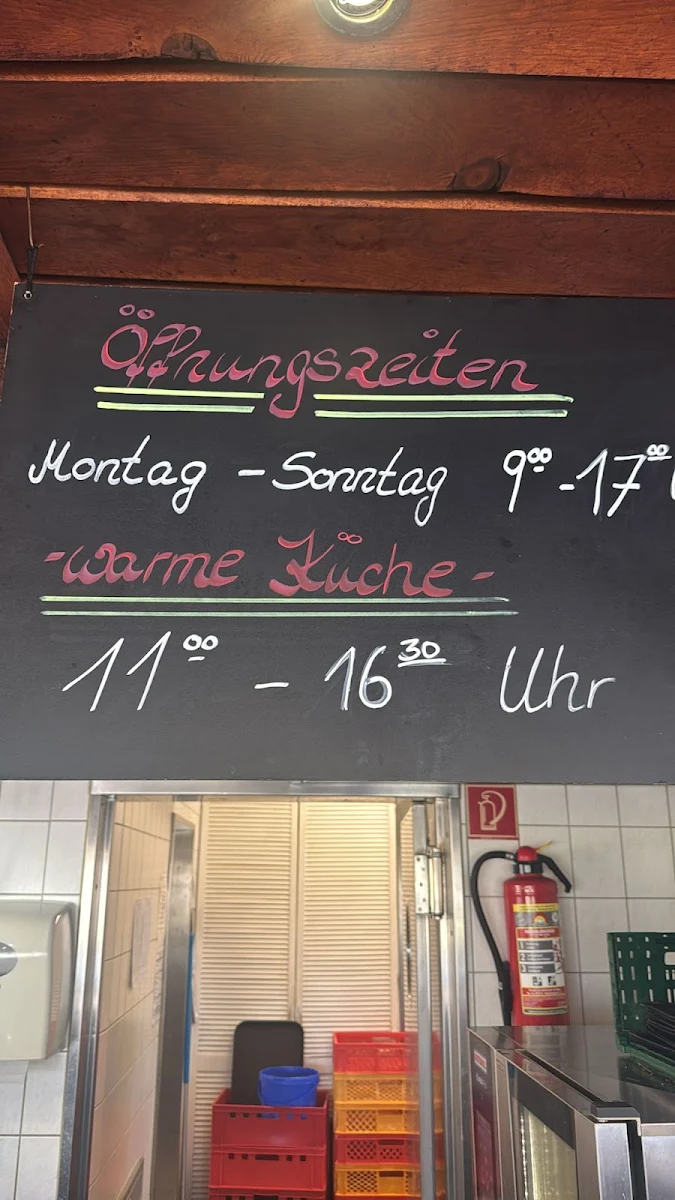 Öffnungszeiten
Montag - Sonntag 9⁰⁰-17⁰⁰
-warme Küche-
11⁰⁰ - 16³⁰ Uhr